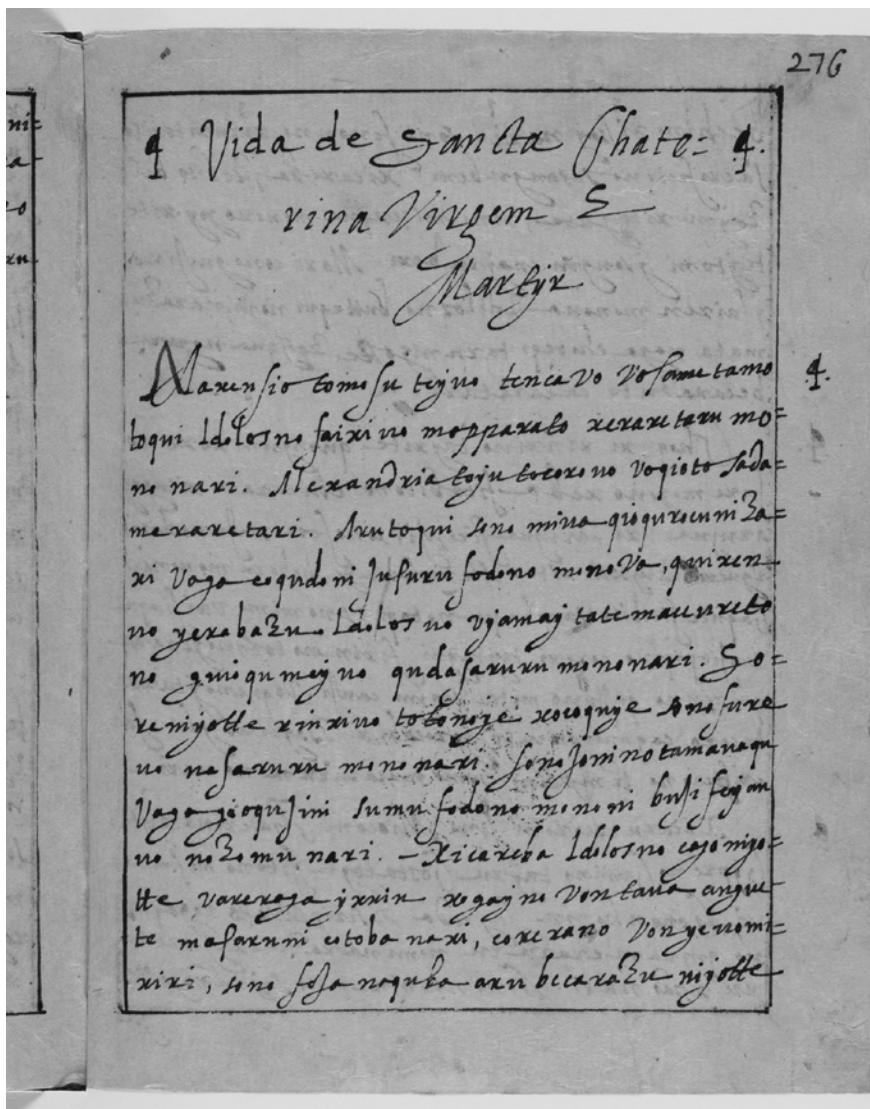 276
¶ Vida de Sancta Chate= ¶.
rina Virgem E
Martyr
Maxensio to mosu teyvo tencavo vosame tamo
toqui Idolos no fairi vo mopparato xeraretaru mo=
no nari. Alexandria toyu tocoro vo voqioto sada=
meraretari. Aru toqui sono miva qioqurocuni za=
ri vaga coqudoni jusuru fodono monova, quiren
vo yerabazu Idolos vo vyamaj tatematcureto
no guioqumey vo qudasaruru mono nari. So=
reniyotte rinrivo totonoje xocoquje sono fure
vo nasaruru mono nari. sono jonino tamavaqu
vaga gioqujini sumu fodono mononi buji feijau
vo nozomu nari. – Xicareba Idolos no cago niyo=
tte vareraga yxxin xogay no von tava angue
te masaruni cotoba nari, corerano von ye vomi=
xiri, sono foja naquba aru becarazu niyotte
ni=
a-
to
xu-
¶.